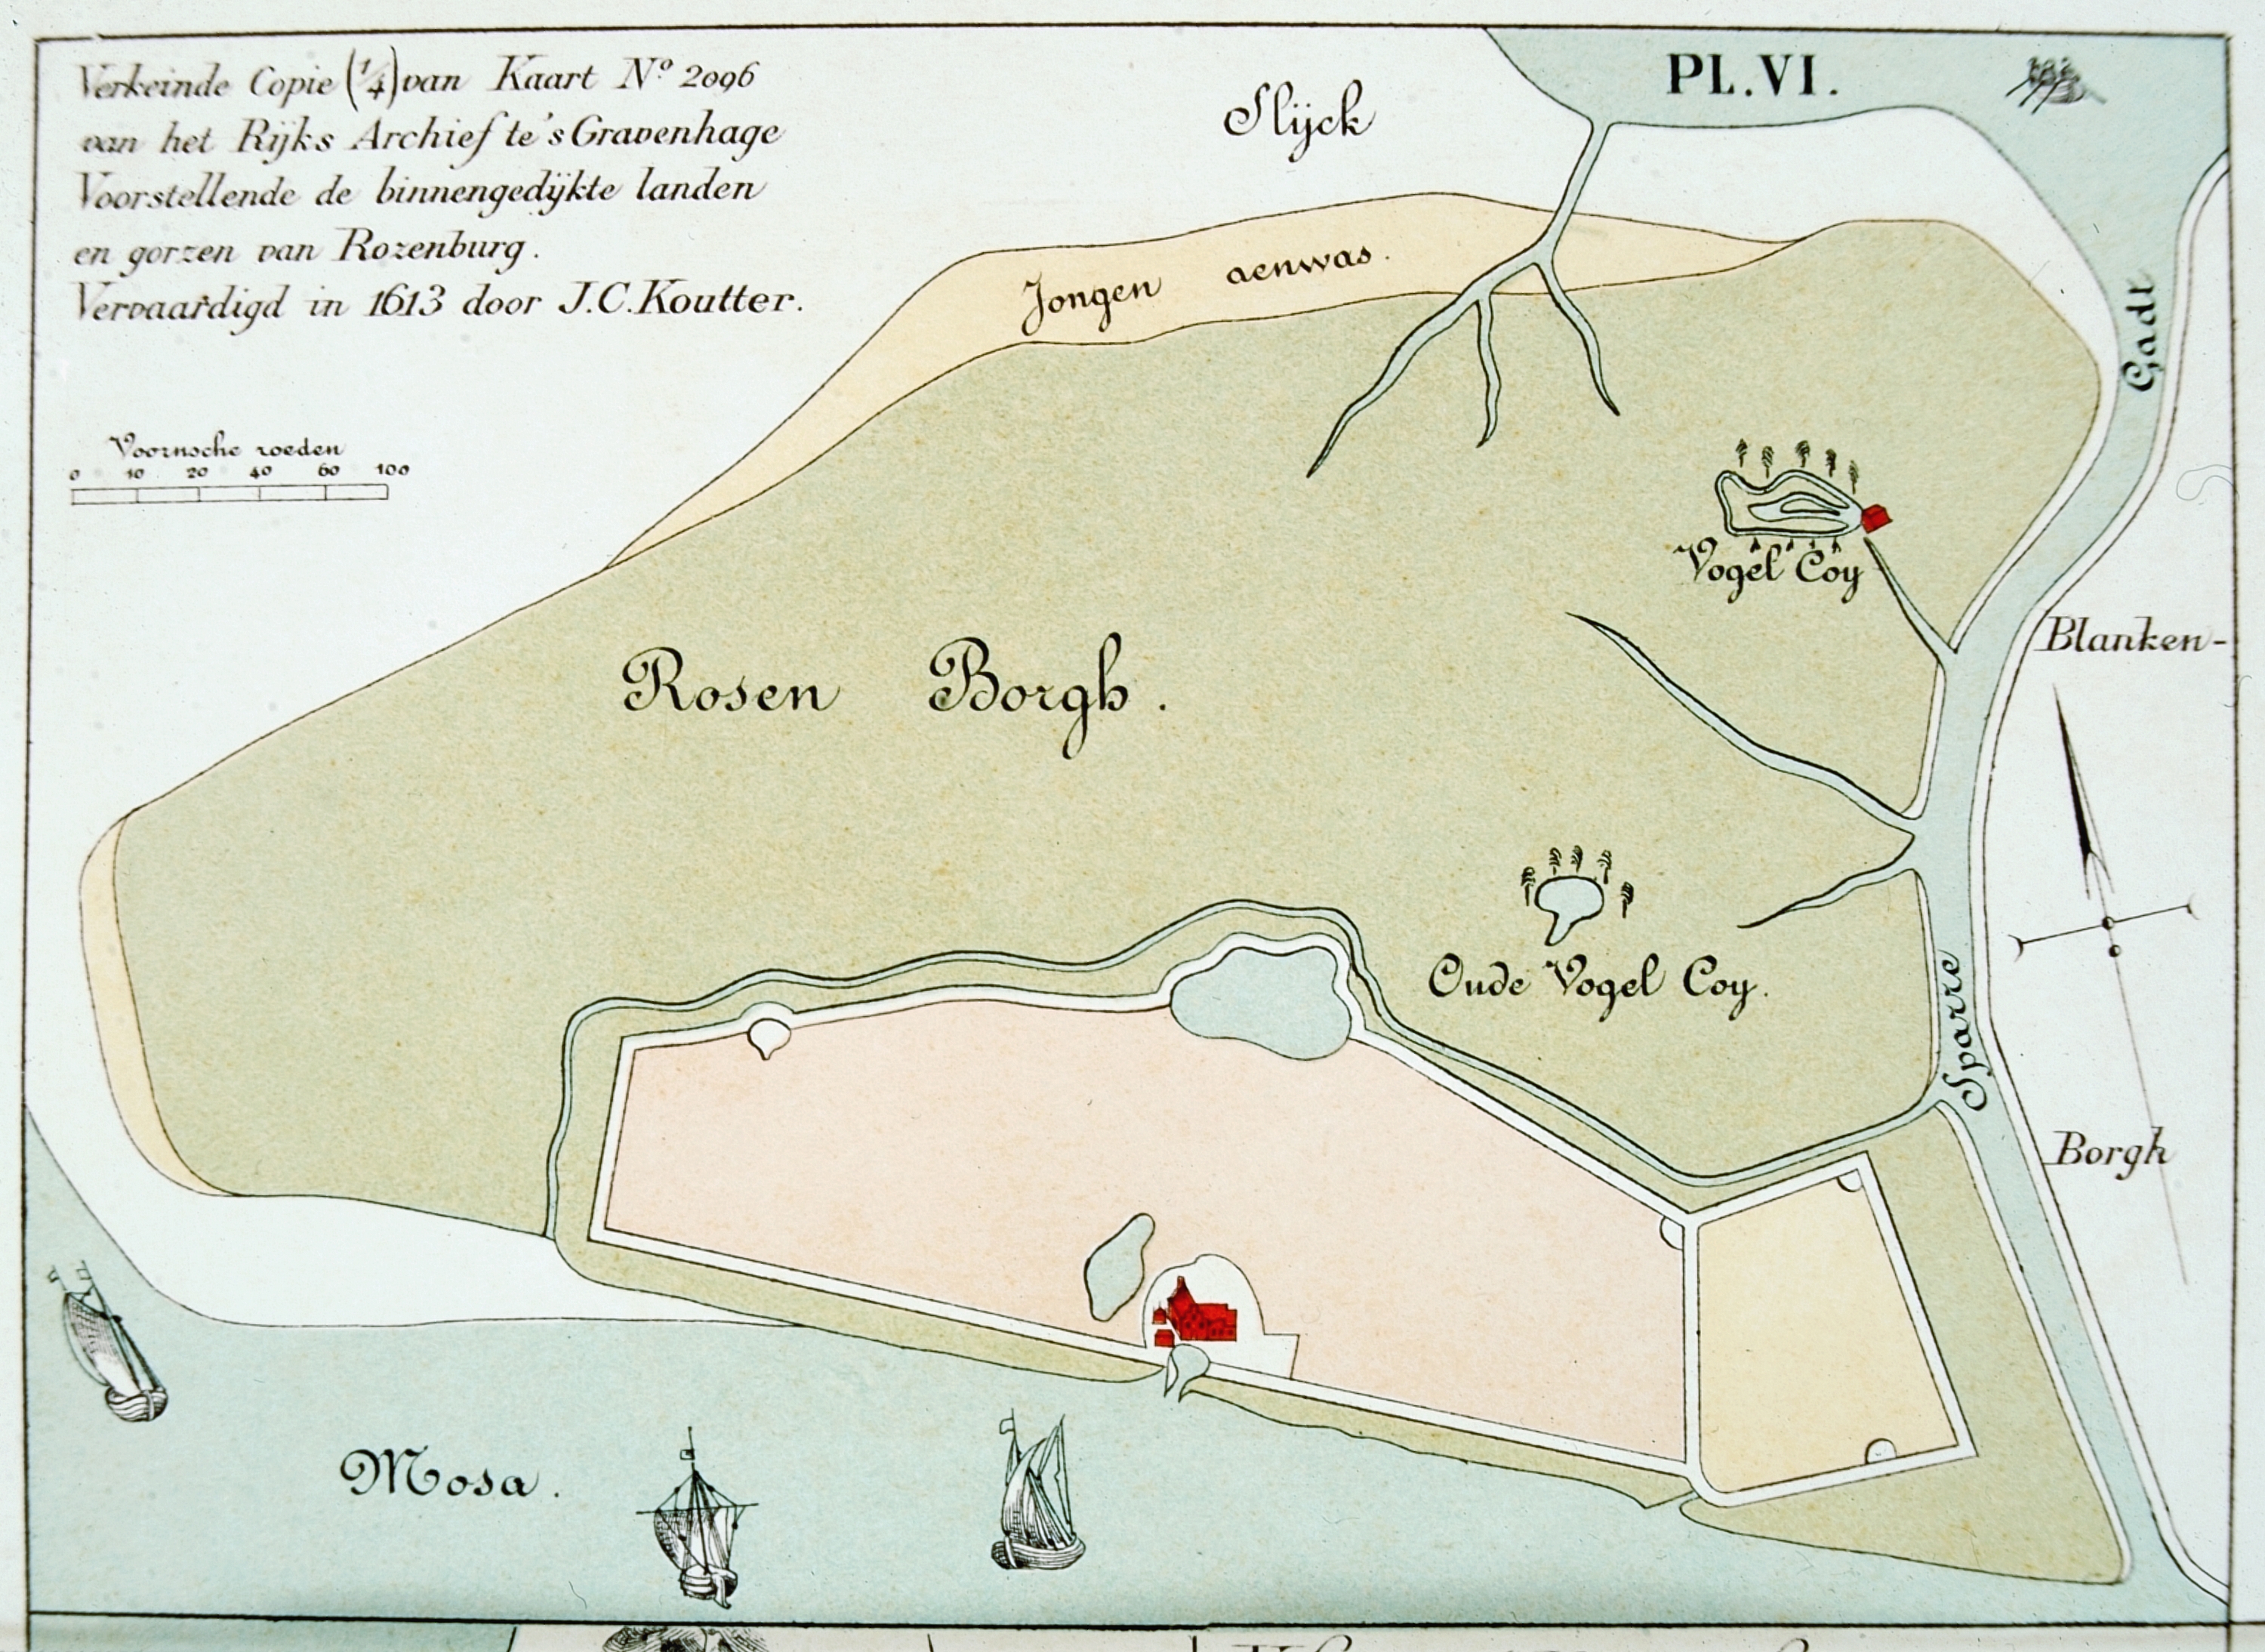 Verkeinde Copie (1/4) van Kaart No. 2096
van het Rijks Archief te 's Gravenhage
Voorstellende de binnengedijkte landen
en gorzen van Rozenburg.
Vervaardigd in 1613 door J.C. Koutter.
PL. VI.
Slijck
Jongen aenwas.
Gadt
Voornsche roeden
0 10 20 40 60 100
Vogel Coy
Blanken-
Rosen Borgh.
Oude Vogel Coy.
Sparre
Borgh
Mosa.